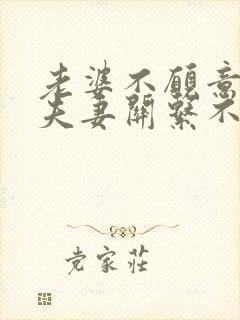 老婆不願意
夫妻關繫不
党家莊